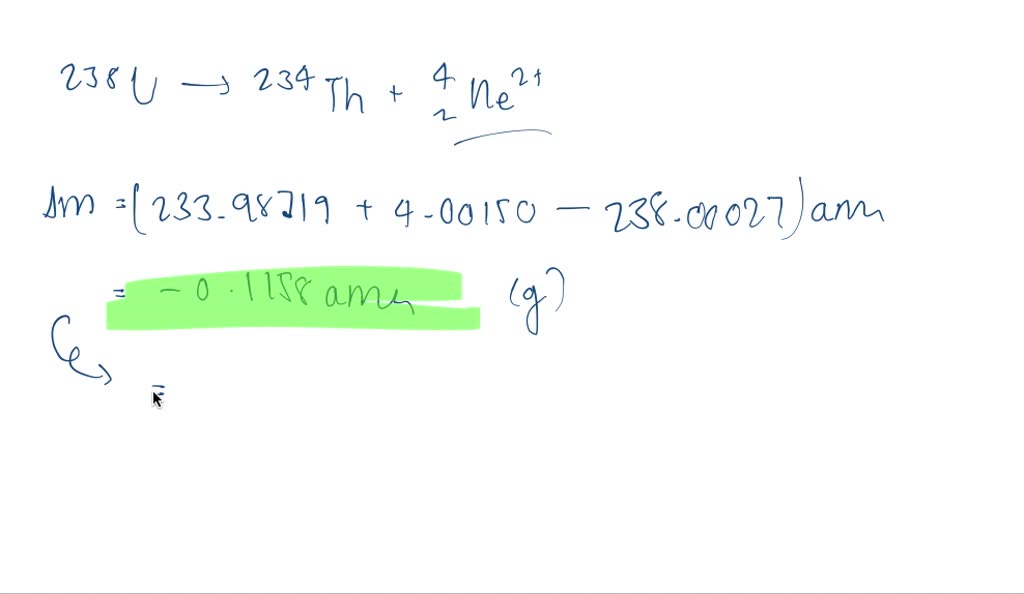 ²³⁸U → ²³⁴Th + ⁴₂He²⁺
Δm = (233.98719 + 4.00150 – 238.00027) amu
= – 0.1158 amu (g)
=